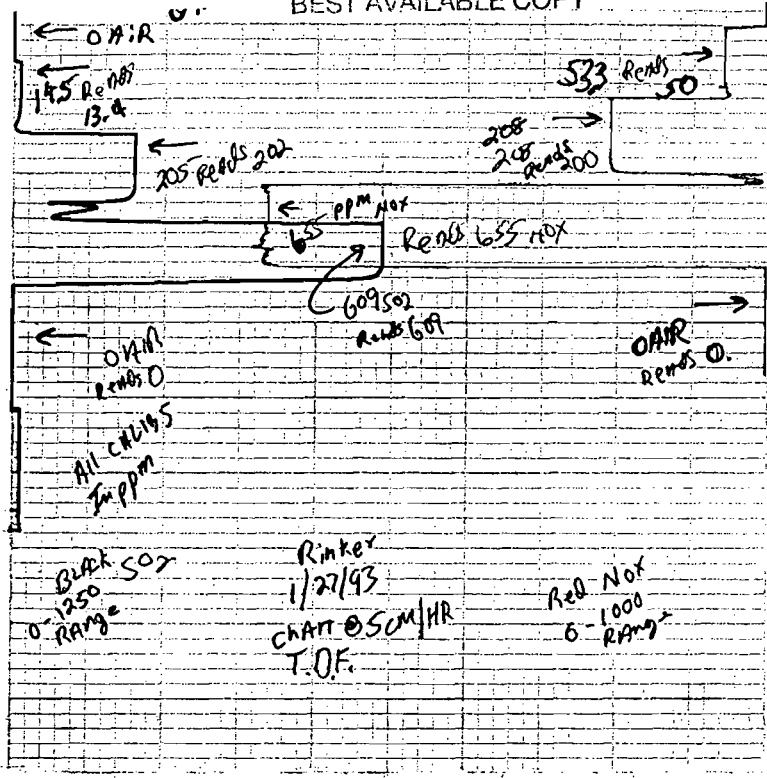 BEST AVAILABLE COPY
0 AIR
14.5 Reads
13.4
533 Reads
50
205 Reads 202
208
208
Reads
200
655 PPM NOX
Reads 655 NOX
609 SO2
Reads 609
0 AIR
Reads 0
0 AIR
Reads 0.
All CALIBS
In ppm
BLACK SO2
0-1250
RANge
Rinker
1/27/93
CHART @ 5 CM/HR
T.O.F.
Red NOX
0-1000
RAnge